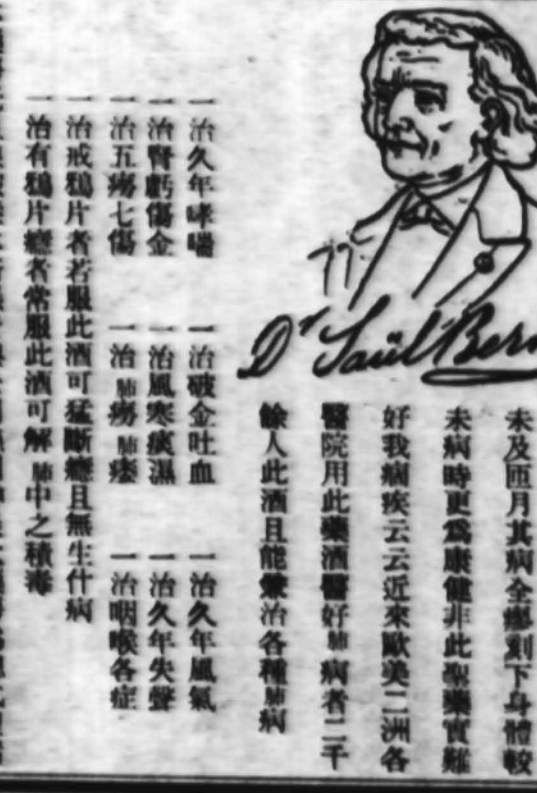 Dr Saül Bern
未及匝月其病全瘳剩下身體較
未病時更爲康健非此聖藥實難
好我痼疾云云近來歐美二洲各
醫院用此藥酒醫好肺病者二千
餘人此酒且能兼治各種肺病
一治久年哮喘 一治破金吐血 一治久年風氣
一治腎虧傷金 一治風寒痰濕 一治久年失聲
一治五癆七傷 一治肺癆肺痿 一治咽喉各症
一治戒鴉片者若服此酒可猛斷癮且無生什病
一治有鴉片癮者常服此酒可解肺中之積毒